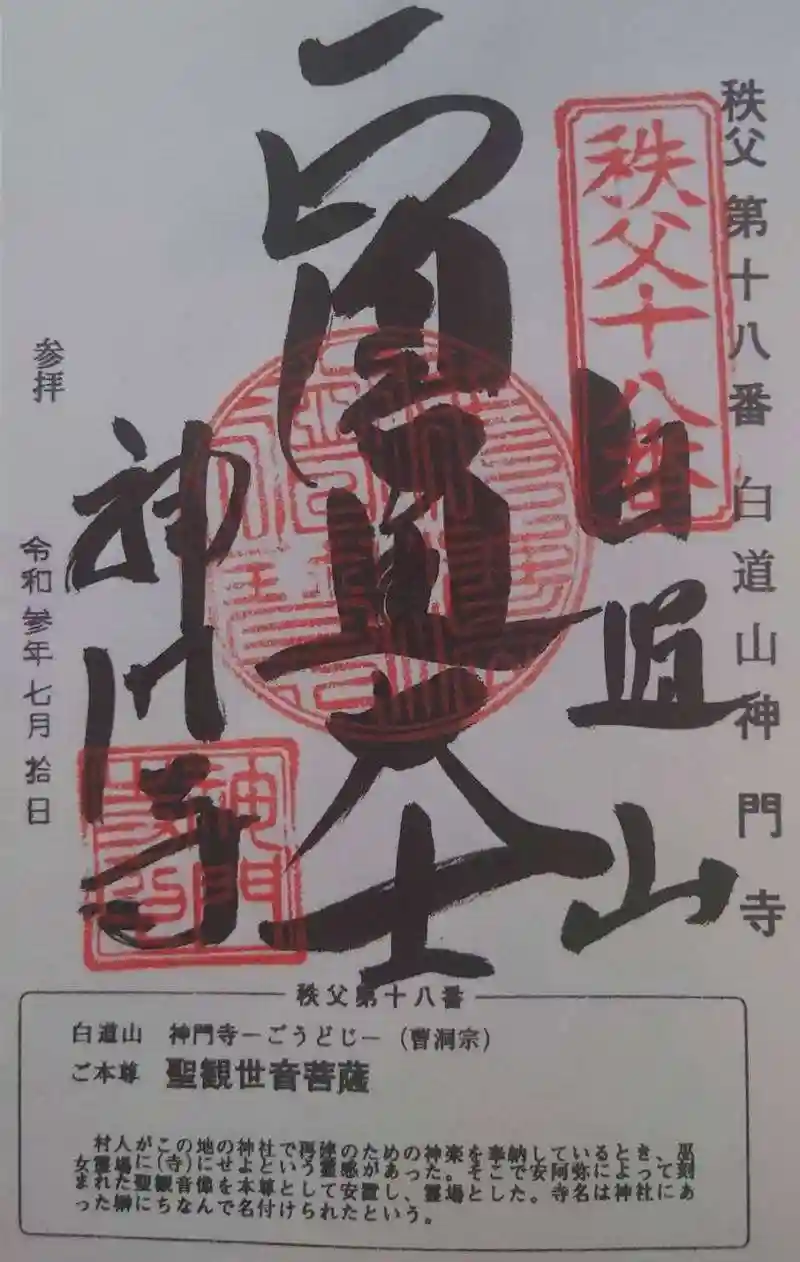 秩父 第十八番 白道山神門寺
秩父十八番
白道山
圓通大士
神門寺
参拝
令和参年七月拾日
神門
秩父第十八番
白道山 神門寺－ごうどじ－（曹洞宗）
ご本尊 聖観世音菩薩
村人がこの地の神社で再建のための神楽を奉納しているとき、巫
女霊場に(寺)にせよという霊感があった。そこで安阿弥によって刻
まれた聖観音像を本尊として安置し、霊場とした。寺名は神社にあ
った榊にちなんで名付けられたという。